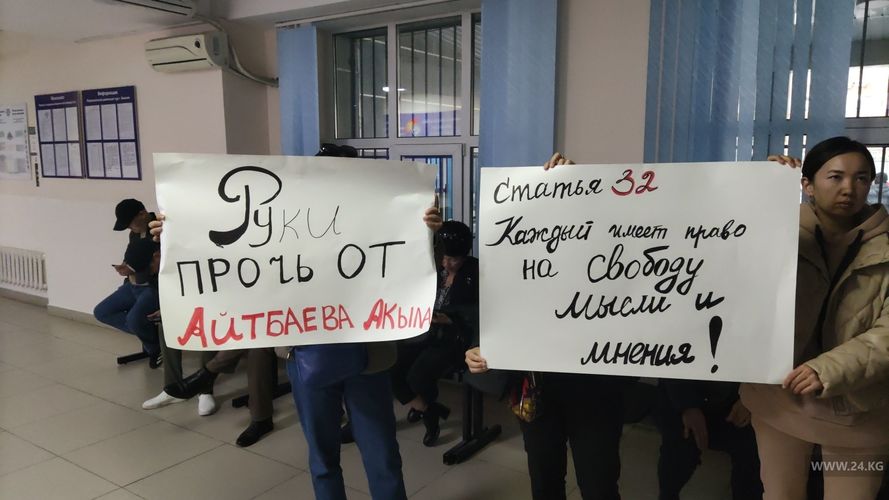 Руки
ПРОЧЬ ОТ
АЙТБАЕВА АКЫЛА
статья 32
Каждый имеет право
на свободу
мысли и
мнения!
Информация
WWW.24.KG